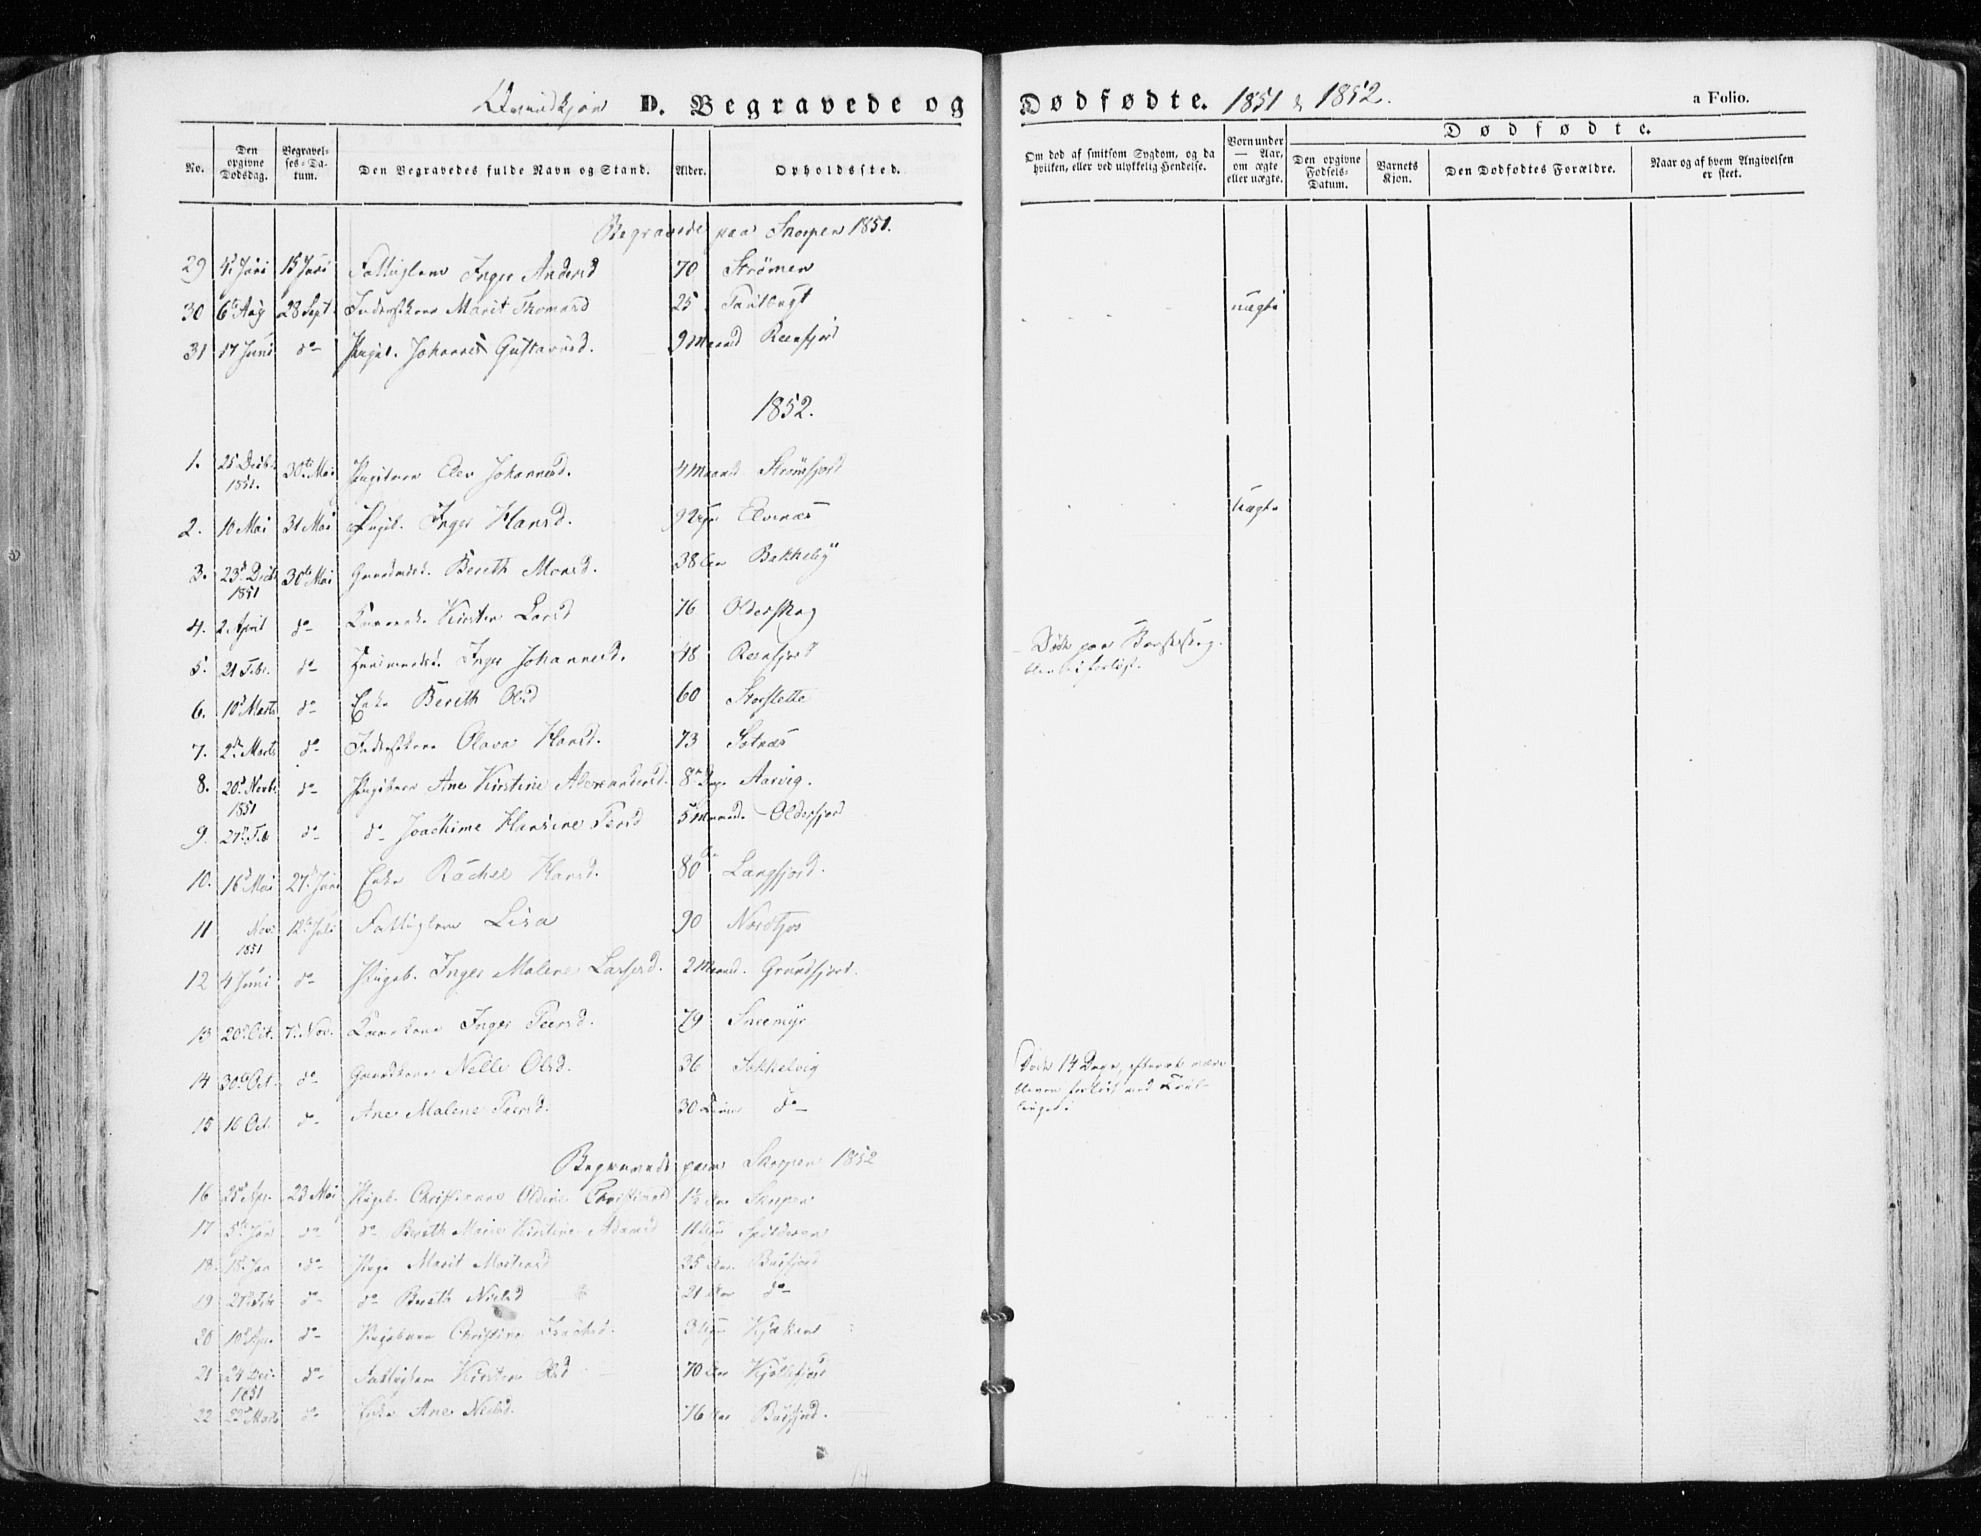 Qvindkjøn D. Begravede og Dødfødte. 1851 & 1852. a Folio.
No. Den opgivne Dødsdag. Begravelses-Datum. Den Begravedes fulde Navn og Stand. Alder. Opholdssted. Om død af smitsom Sygdom, og da hvilken, eller ved ulykkelig Hendelse. Vorn under — Aar, om ægte eller uægte. Dødfødte.
Den opgivne Fødsels-Datum. Barnets Kjøn. Den Dødfødtes Forældre. Naar og af hvem Angivelsen er skeet.
Begravede paa Skorpen 1851.
29 Juni 15 Juni Fattiglem Inger Andersd 70 Strømen
30 6te Aug 28 Sept. Inderstkone Marit Thomasd 25 Tøitbugt uægte
31 17 Juni do Pigeb. Johanne Gustavusd. 9 Maaned Reenfjord
1852.
1. 25 Decbr 1851. 30te Mai Pigebarn Elen Johannesd. 4 Maaned Straumfjord
2. 10 Mai 31 Mai Pigeb. Inger Hansd. 9 Uger Elvenæs Uægte
3. 23d Decbr 1851 30te Mai Gaardmdsk. Bereth Monsd. 38 Aar Bakkeby
4. 2 April do Kirsten Larsd 76 Olderskog
5. 21 Febr. do Inger Johannesd. 48 Reenfjord Døde paa Barselseng. blev ei forløst.
6. 10d Marts do Enke Berith Olsd 60 Storslette
7. 2den Marts do Inderstkone Olava Hansd. 73 Sotnæs
8. 20d Novbr 1851 do Pigebarn Ane Kirstine Alexandersd. 8te Dage Aarvig.
9. 27d Feb do do Joachime Hansine Persd 5 Maaned. Olderfjord
10. 16d Mai 27d Juni Enke Rachel Hansd. 80 Langfjord.
11 Nov. 1851 12te Juli Fattiglem Lisa 90 Nordtjos
12 4 Juni do Pigeb. Inger Malene Larsesd. 2 Maaned. Grundfjord.
13 20d Oct. 7d Nov. Inger Peersd. 79 Sneemyr
14 30te Oct. do Gaardkone Nelle Olsd. 36 Sokkelvig Døde 14 Dage, efterat være bleven forløst med
15 16 Oct. do Ane Malene Peersd. 30 do
Begravede paa Skorpen 1852
16 25d Apr. 23 Mai Pigeb. Christianne Oldine Christiansd 1½ Aar Skorpen
17 5te Jan do do Berith Marie Kirstine Adamsd 11 Aar Spildren
18 18d Jan do Pige Marit Mortensd 25 Aar Burfjord
19 21d Feb do do Berith Nielsd 21 Aar do
20 10d Apr. do Pigebarn Christine Isachsd. 3 Kjækan
21 24 Dec. 1851 do Fattiglem Kirsten Olsd 70 Aar Kjøllefjord
22 22d Marts do Enke Ane Nielsd. 76 Aar Burfjord.